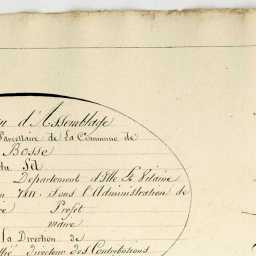 d'Assemblage
Parcellaire de La Commune de
Bosse
du Sel
Département d'Ille Et Vilaine
Sous l'Administration de
Préfet
maire
la Direction de
directeur des Contributions